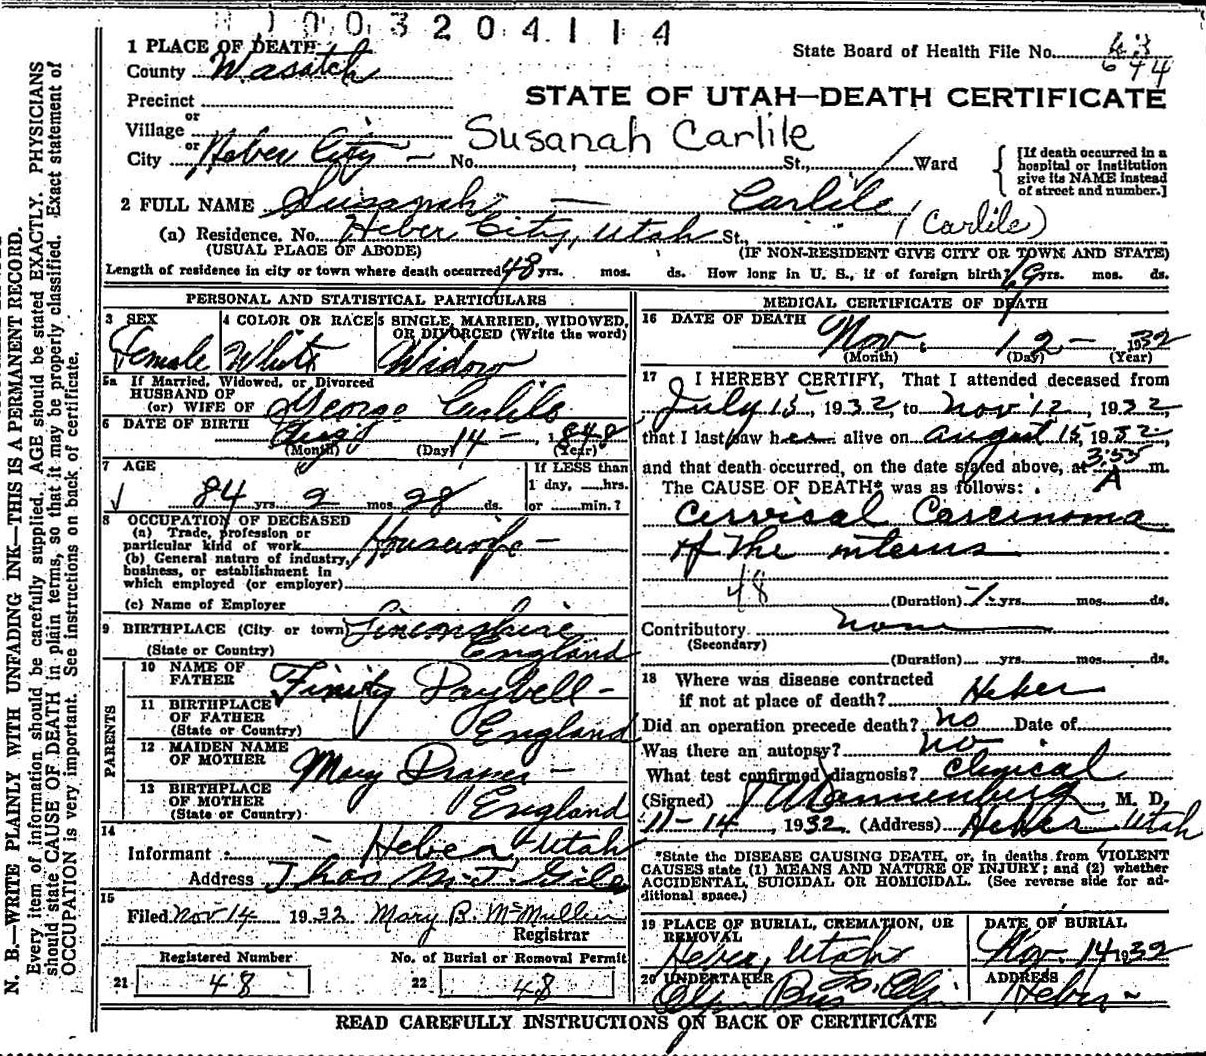 1003204114
State Board of Health File No. 43
674
1 PLACE OF DEATH
County Wasatch
STATE OF UTAH—DEATH CERTIFICATE
Precinct
or
Village
Susanah Carlile
or
City Heber City — No. St., Ward
[If death occurred in a hospital or institution give its NAME instead of street and number.]
2 FULL NAME Susanah — Carlile
(Carlile)
(a) Residence. No. Heber City, Utah St.,
(USUAL PLACE OF ABODE) (IF NON-RESIDENT GIVE CITY OR TOWN AND STATE)
Length of residence in city or town where death occurred 48 yrs. mos. ds. How long in U. S., if of foreign birth? 69 yrs. mos. ds.
PERSONAL AND STATISTICAL PARTICULARS
3 SEX
Female
4 COLOR OR RACE
White
5 SINGLE, MARRIED, WIDOWED, OR DIVORCED (Write the word)
Widow
5a If Married, Widowed, or Divorced
HUSBAND OF
(or) WIFE OF George Carlile
6 DATE OF BIRTH Aug 14 — 1848
(Month) (Day) (Year)
7 AGE
84 yrs. 2 mos. 28 ds.
If LESS than
1 day, hrs.
or min.?
8 OCCUPATION OF DECEASED
(a) Trade, profession or
particular kind of work Housewife —
(b) General nature of industry,
business, or establishment in
which employed (or employer)
(c) Name of Employer
9 BIRTHPLACE (City or town) Linconshire
(State or Country) England
PARENTS
10 NAME OF
FATHER Finity Daybell —
11 BIRTHPLACE
OF FATHER
(State or Country) England
12 MAIDEN NAME
OF MOTHER Mary Draper —
13 BIRTHPLACE
OF MOTHER
(State or Country) England
14
Informant Heber, Utah
Address Thos M. T. Giles
15
Filed Nov 14 1932 Mary B. McMullin
Registrar
Registered Number
21 48
No. of Burial or Removal Permit
22 48
MEDICAL CERTIFICATE OF DEATH
16 DATE OF DEATH
Nov. 12 — 1932
(Month) (Day) (Year)
17 I HEREBY CERTIFY, That I attended deceased from
July 15, 1932, to Nov 12, 1932,
that I last saw her alive on august 15, 1932,
and that death occurred, on the date stated above, at 3:55 A m.
The CAUSE OF DEATH* was as follows:
Cervical Carcinoma
of the uterus
48
(Duration) 1 yrs. mos. ds.
Contributory none
(Secondary)
(Duration) yrs. mos. ds.
18 Where was disease contracted
if not at place of death? Heber
Did an operation precede death? no Date of
Was there an autopsy? no
What test confirmed diagnosis? Clinical
(Signed) Dannenberg, M. D.
11-14, 1932 (Address) Heber Utah
*State the DISEASE CAUSING DEATH, or, in deaths from VIOLENT
CAUSES state (1) MEANS AND NATURE OF INJURY; and (2) whether
ACCIDENTAL, SUICIDAL OR HOMICIDAL. (See reverse side for ad-
ditional space.)
19 PLACE OF BURIAL, CREMATION, OR
REMOVAL
Heber, Utah
DATE OF BURIAL
Nov. 14 1932
20 UNDERTAKER
ADDRESS
Heber —
READ CAREFULLY INSTRUCTIONS ON BACK OF CERTIFICATE
N. B.—WRITE PLAINLY WITH UNFADING INK—THIS IS A PERMANENT RECORD.
Every item of information should be carefully supplied. AGE should be stated EXACTLY. PHYSICIANS
should state CAUSE OF DEATH in plain terms, so that it may be properly classified. Exact statement of
OCCUPATION is very important. See instructions on back of certificate.